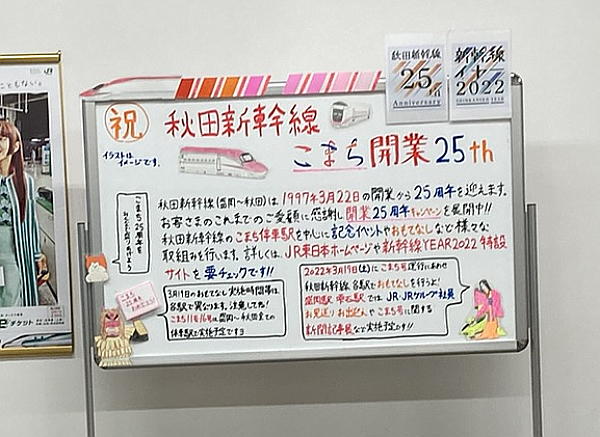 祝
秋田新幹線
こまち開業25th
イラストは
イメージです。
秋田新幹線
25th
Anniversary
新幹線
イヤー
2022
SHINKANSEN YEAR
秋田新幹線(盛岡〜秋田)は1997年3月22日の開業から25周年を迎えます。
お客さまのこれまでのご愛顧に感謝し開業25周年キャンペーンを展開中!!
秋田新幹線のこまち停車駅を中心に記念イベントやおもてなしなど様々な
取組みを行います。詳しくは、JR東日本ホームページや新幹線YEAR2022特設
サイトを要チェックです!!
こまち25周年を
3月19日のおもてなし実施時間帯は
各駅で異なります。注意してね!
停車駅で実施予定です
2022年3月19日(土)にこまち号運行にあわせ
秋田新幹線 各駅でおもてなしを行うよ!
盛岡駅 雫石駅では JR・JRグループ社員
お見送り お出迎えや こまち号に関する
新聞記事展など実施予定です!!
チケット